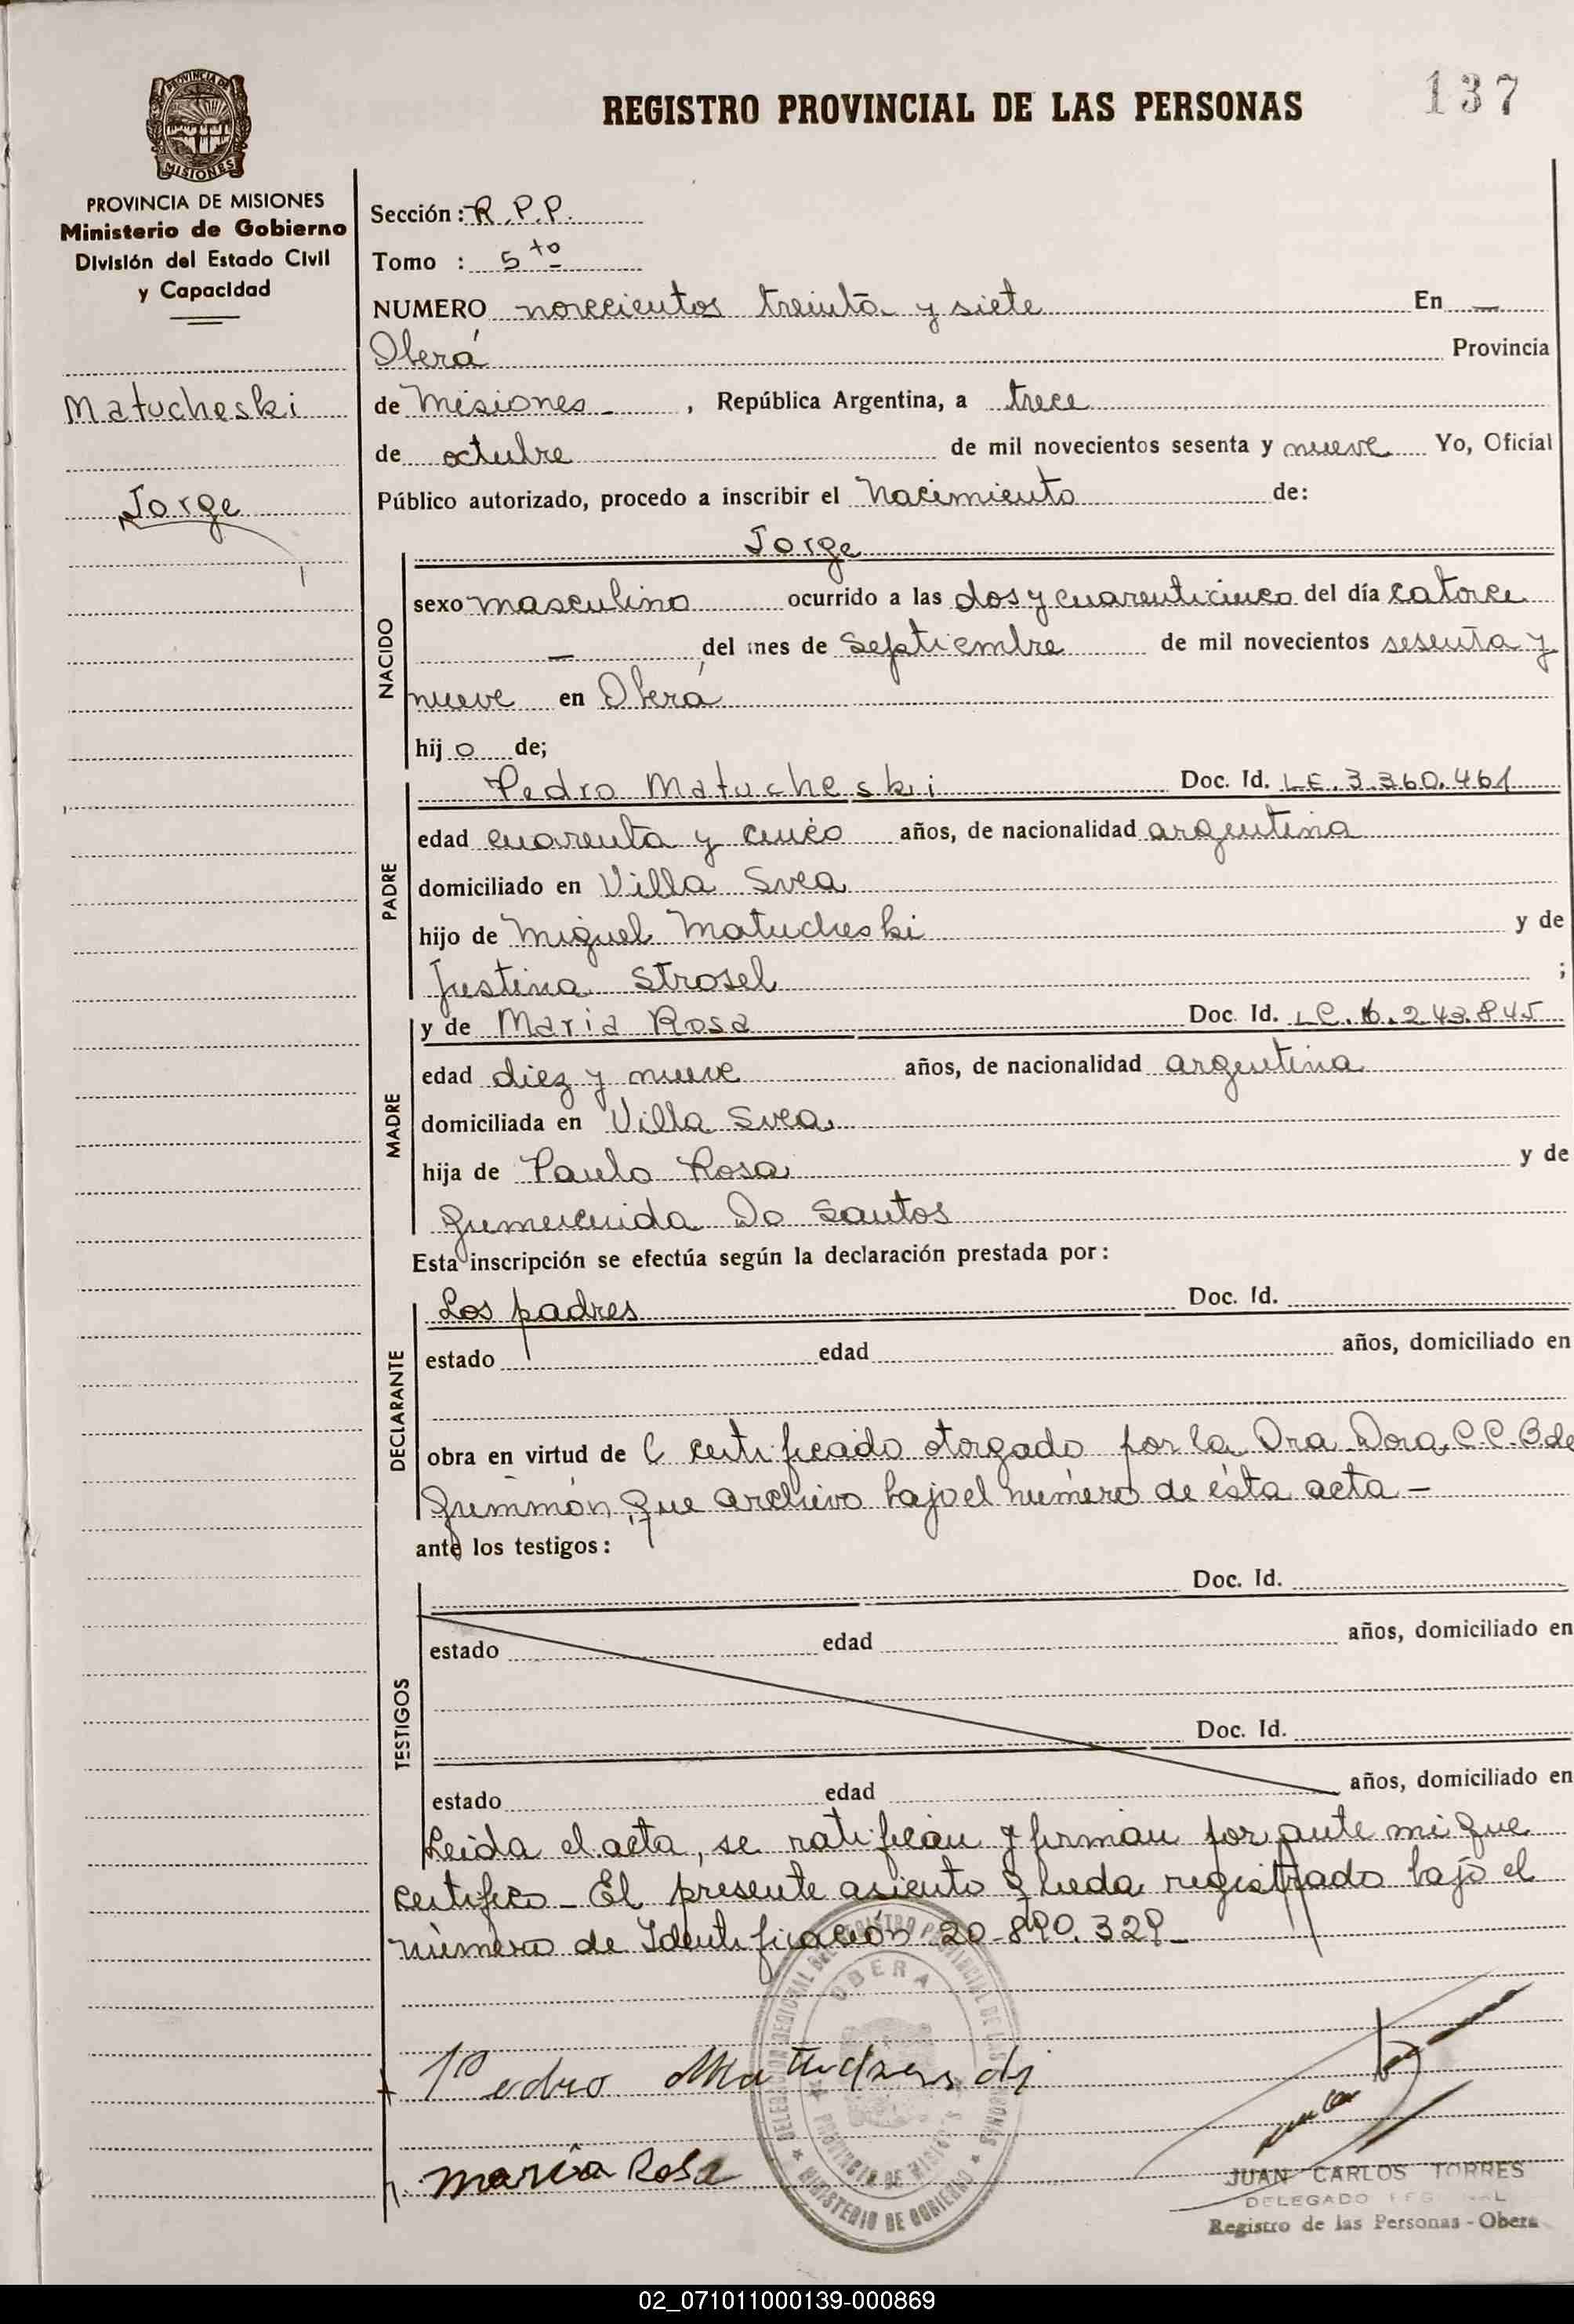 REGISTRO PROVINCIAL DE LAS PERSONAS
137
PROVINCIA DE MISIONES
PROVINCIA DE MISIONES
Ministerio de Gobierno
División del Estado Civil
y Capacidad
Matucheski
Jorge
Sección: R.P.P.
Tomo : 5to
NUMERO novecientos treinta y siete En —
Oberá Provincia
de Misiones - , República Argentina, a trece
de octubre de mil novecientos sesenta y nueve Yo, Oficial
Público autorizado, procedo a inscribir el Nacimiento de:
Jorge
NACIDO
sexo masculino ocurrido a las dos y cuarenticinco del día catorce
— del mes de Septiembre de mil novecientos sesenta y
nueve en Oberá
hijo de;
PADRE
Pedro Matucheski Doc. Id. LE. 3.360.461
edad cuarenta y cinco años, de nacionalidad argentina
domiciliado en Villa Svea
hijo de Miguel Matucheski y de
Justina Strosel ;
MADRE
y de Maria Rosa Doc. Id. LC. 6.243.845
edad diez y nueve años, de nacionalidad argentina
domiciliada en Villa Svea
hija de Paulo Rosa y de
Gumercinida Do Santos
Esta inscripción se efectúa según la declaración prestada por:
DECLARANTE
Los padres Doc. Id.
estado edad años, domiciliado en
obra en virtud de certificado otorgado por la Dra Dora C.C.B de
que archivo bajo el número de ésta acta -
ante los testigos:
TESTIGOS
Doc. Id.
estado edad años, domiciliado en
Doc. Id.
estado edad años, domiciliado en
Leida el acta, se ratifican y firman por ante mi que
certifico - El presente asiento queda registrado bajo el
número de Identificación 20-890.329-
DELEGACION REGIONAL DEL REGISTRO PROVINCIAL DE LAS PERSONAS
OBERA
PROVINCIA DE MISIONES
MINISTERIO DE GOBIERNO
Pedro
maria Rosa
JUAN CARLOS TORRES
DELEGADO REGIONAL
Registro de las Personas - Obera
02_071011000139-000869